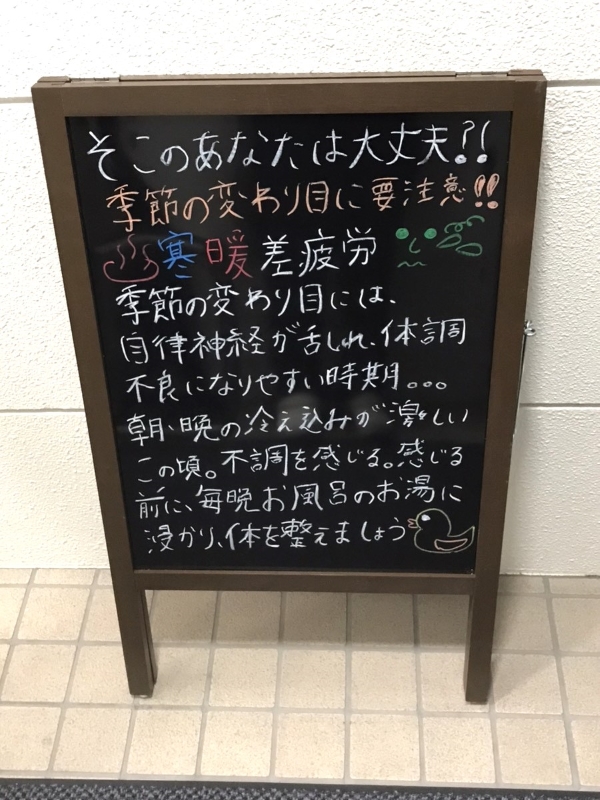 そこのあなたは大丈夫?!
季節の変わり目に要注意!!
寒暖差疲労
季節の変わり目には、
自律神経が乱れ、体調
不良になりやすい時期。。。
朝・晩の冷え込みが激しい
この頃。不調を感じる。感じる
前に、毎晩お風呂のお湯に
浸かり、体を整えましょう